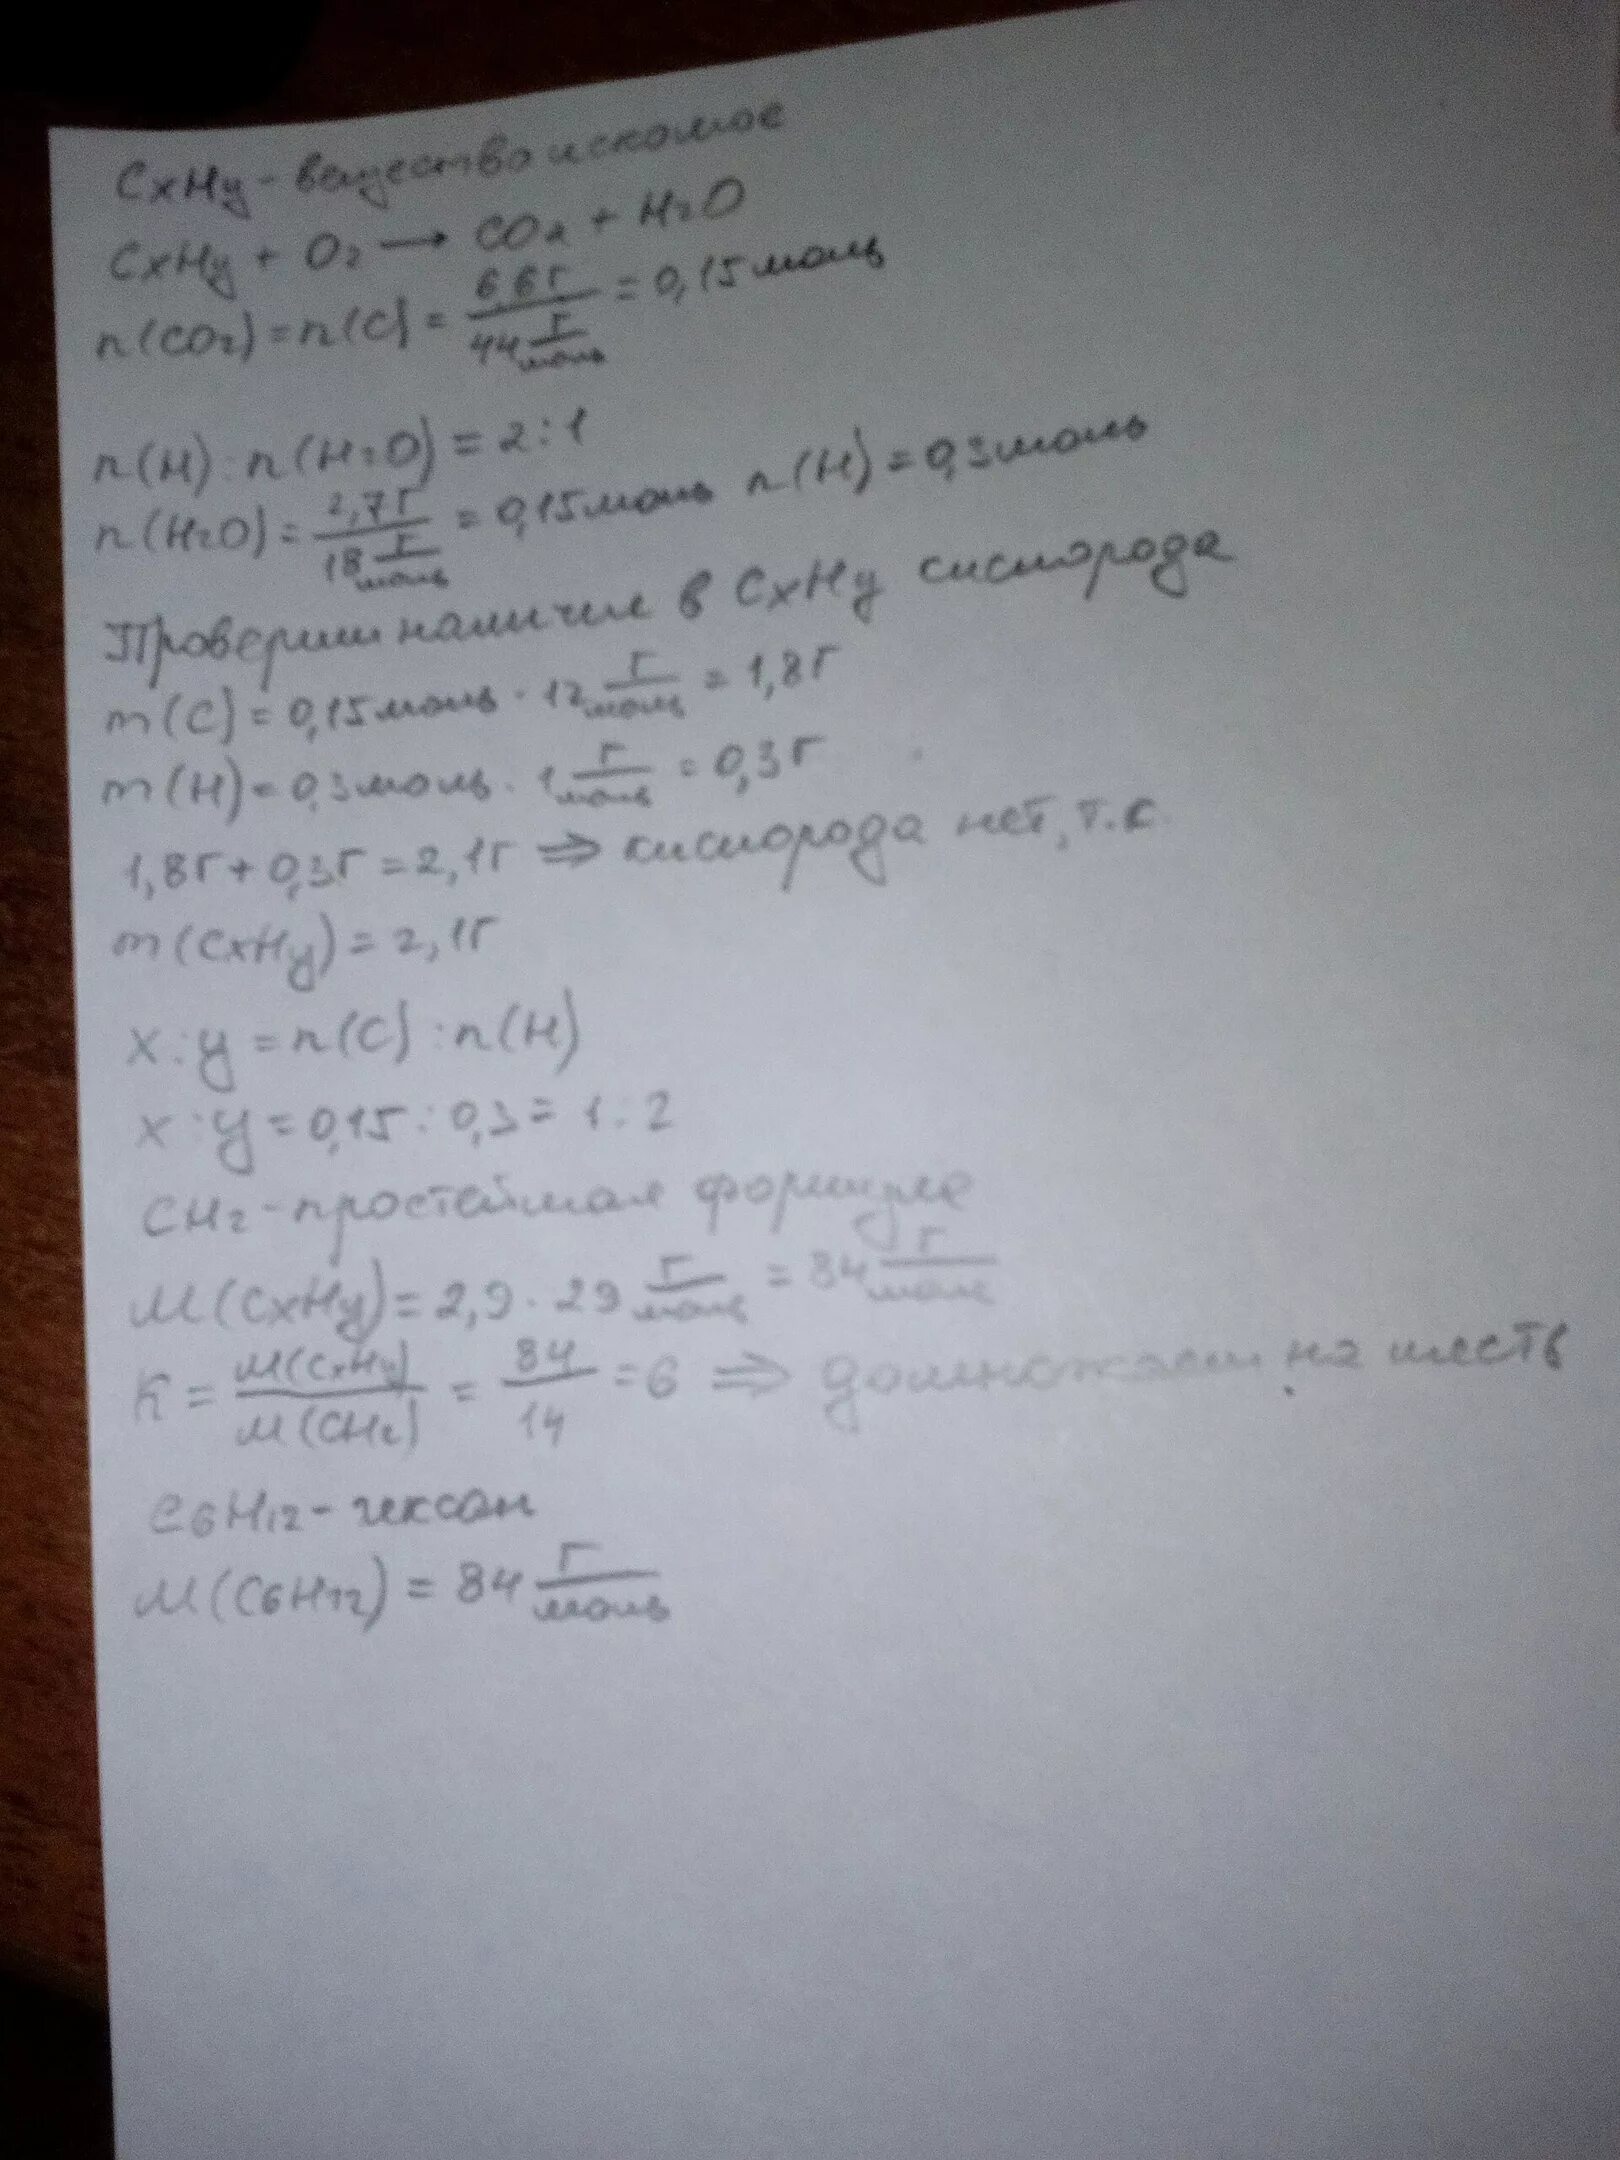 CxHy - вещество искомое
CxHy + O2 → CO2 + H2O
n(CO2) = n(C) = 6,6г / 44 г/моль = 0,15 моль
n(H) : n(H2O) = 2 : 1
n(H2O) = 2,7г / 18 г/моль = 0,15 моль n(H) = 0,3 моль
Проверим наличие в CxHy кислорода
m(C) = 0,15 моль · 12 г/моль = 1,8г
m(H) = 0,3 моль · 1 г/моль = 0,3г
1,8г + 0,3г = 2,1г ⇒ кислорода нет, т.к.
m(CxHy) = 2,1г
x : y = n(C) : n(H)
x : y = 0,15 : 0,3 = 1 : 2
CH2 - простейшая формула
M(CxHy) = 2,9 · 29 г/моль = 84 г/моль
K = M(CxHy) / M(CH2) = 84 / 14 = 6 ⇒ домножаем на шесть
C6H12 - гексан
M(C6H12) = 84 г/моль